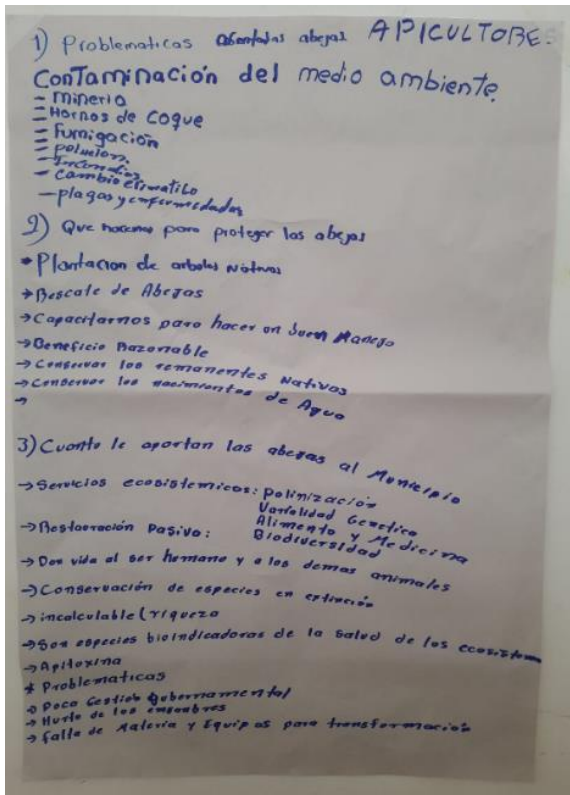 1) Problematicas abejas APICULTORE.
Contaminación del medio ambiente.
- Mineria
- Hornos de Coque
- Fumigación
- polucion.
- Incendios
- Cambio climatico
- plagas y enfermedades
2) Que hacemos para proteger las abejas
* Plantacion de arboles Nativos
→ Rescate de Abejas
→ Capacitarnos para hacer un buen Manejo
→ Beneficio Razonable
→ Conservar los remanentes Nativos
→ Conservar los nacimientos de Agua
→
3) Cuanto le aportan las abejas al Municipio
→ Servicios ecosistemicos: polinización
Variolidad Genetica
Alimento y Medicina
→ Restauración Pasiva: Biodiversidad
→ Dan vida al ser humano y a los demas animales
→ Conservación de especies en extinción
→ incalculable (riqueza
→ Son especies bioindicadoras de la salud de los ecosistema
→ Apitoxina
* Problematicas
→ Poca Gestión Gubernamental
→ Hurto de los enjambres
→ falta de Materia y Equipos para transformación